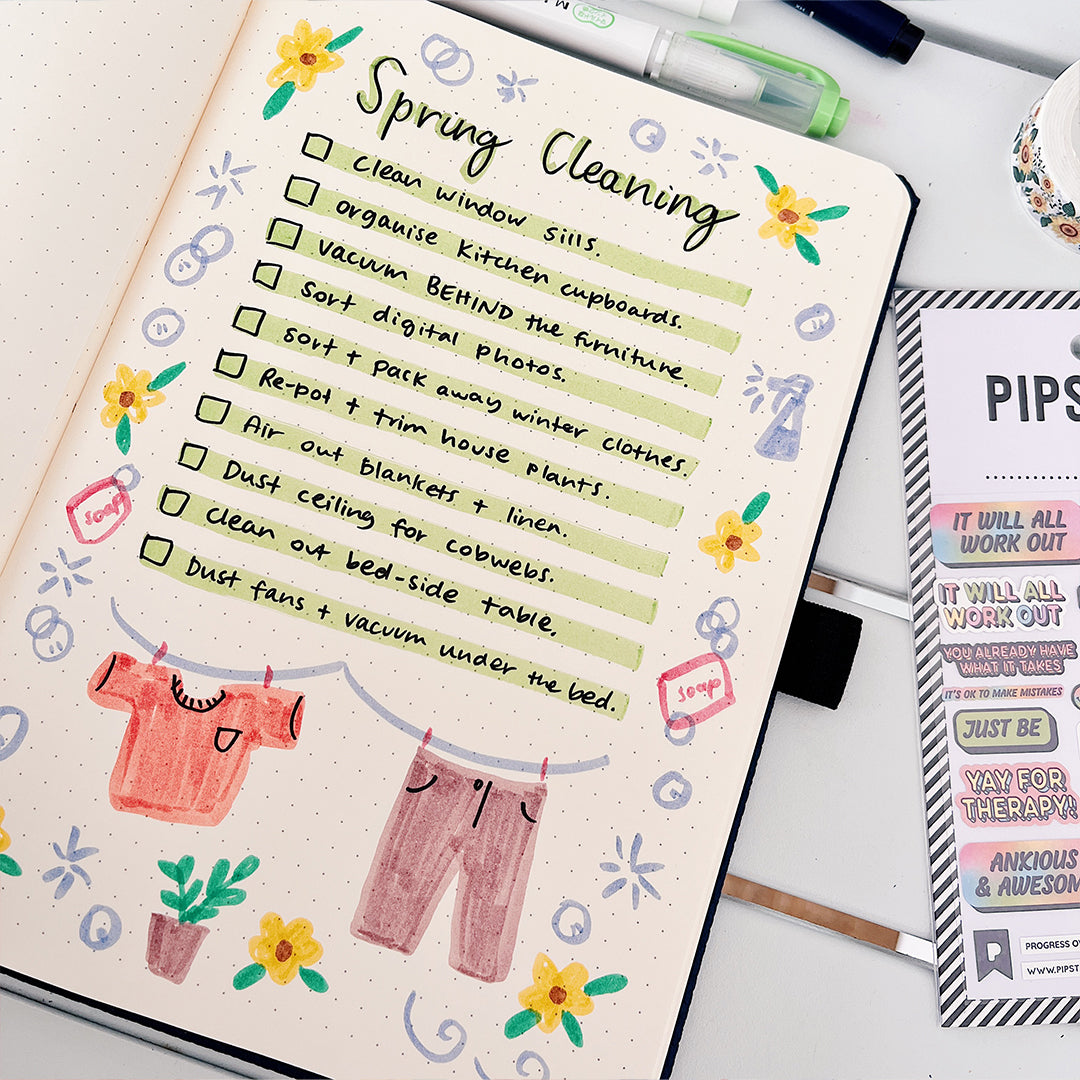 Spring Cleaning
clean window sills.
organise kitchen cupboards.
vacuum BEHIND the furniture.
Sort digital photos.
sort + pack away winter clothes.
Re-pot + trim house plants.
Air out blankets + linen.
Dust ceiling for cobwebs.
clean out bed-side table.
Dust fans + vacuum under the bed.
soap
soap
PIPS
IT WILL ALL
WORK OUT
IT WILL ALL
WORK OUT
YOU ALREADY HAVE
WHAT IT TAKES
IT'S OK TO MAKE MISTAKES
JUST BE
YAY FOR
THERAPY!
ANXIOUS
& AWESOM
PROGRESS OV
WWW.PIPST